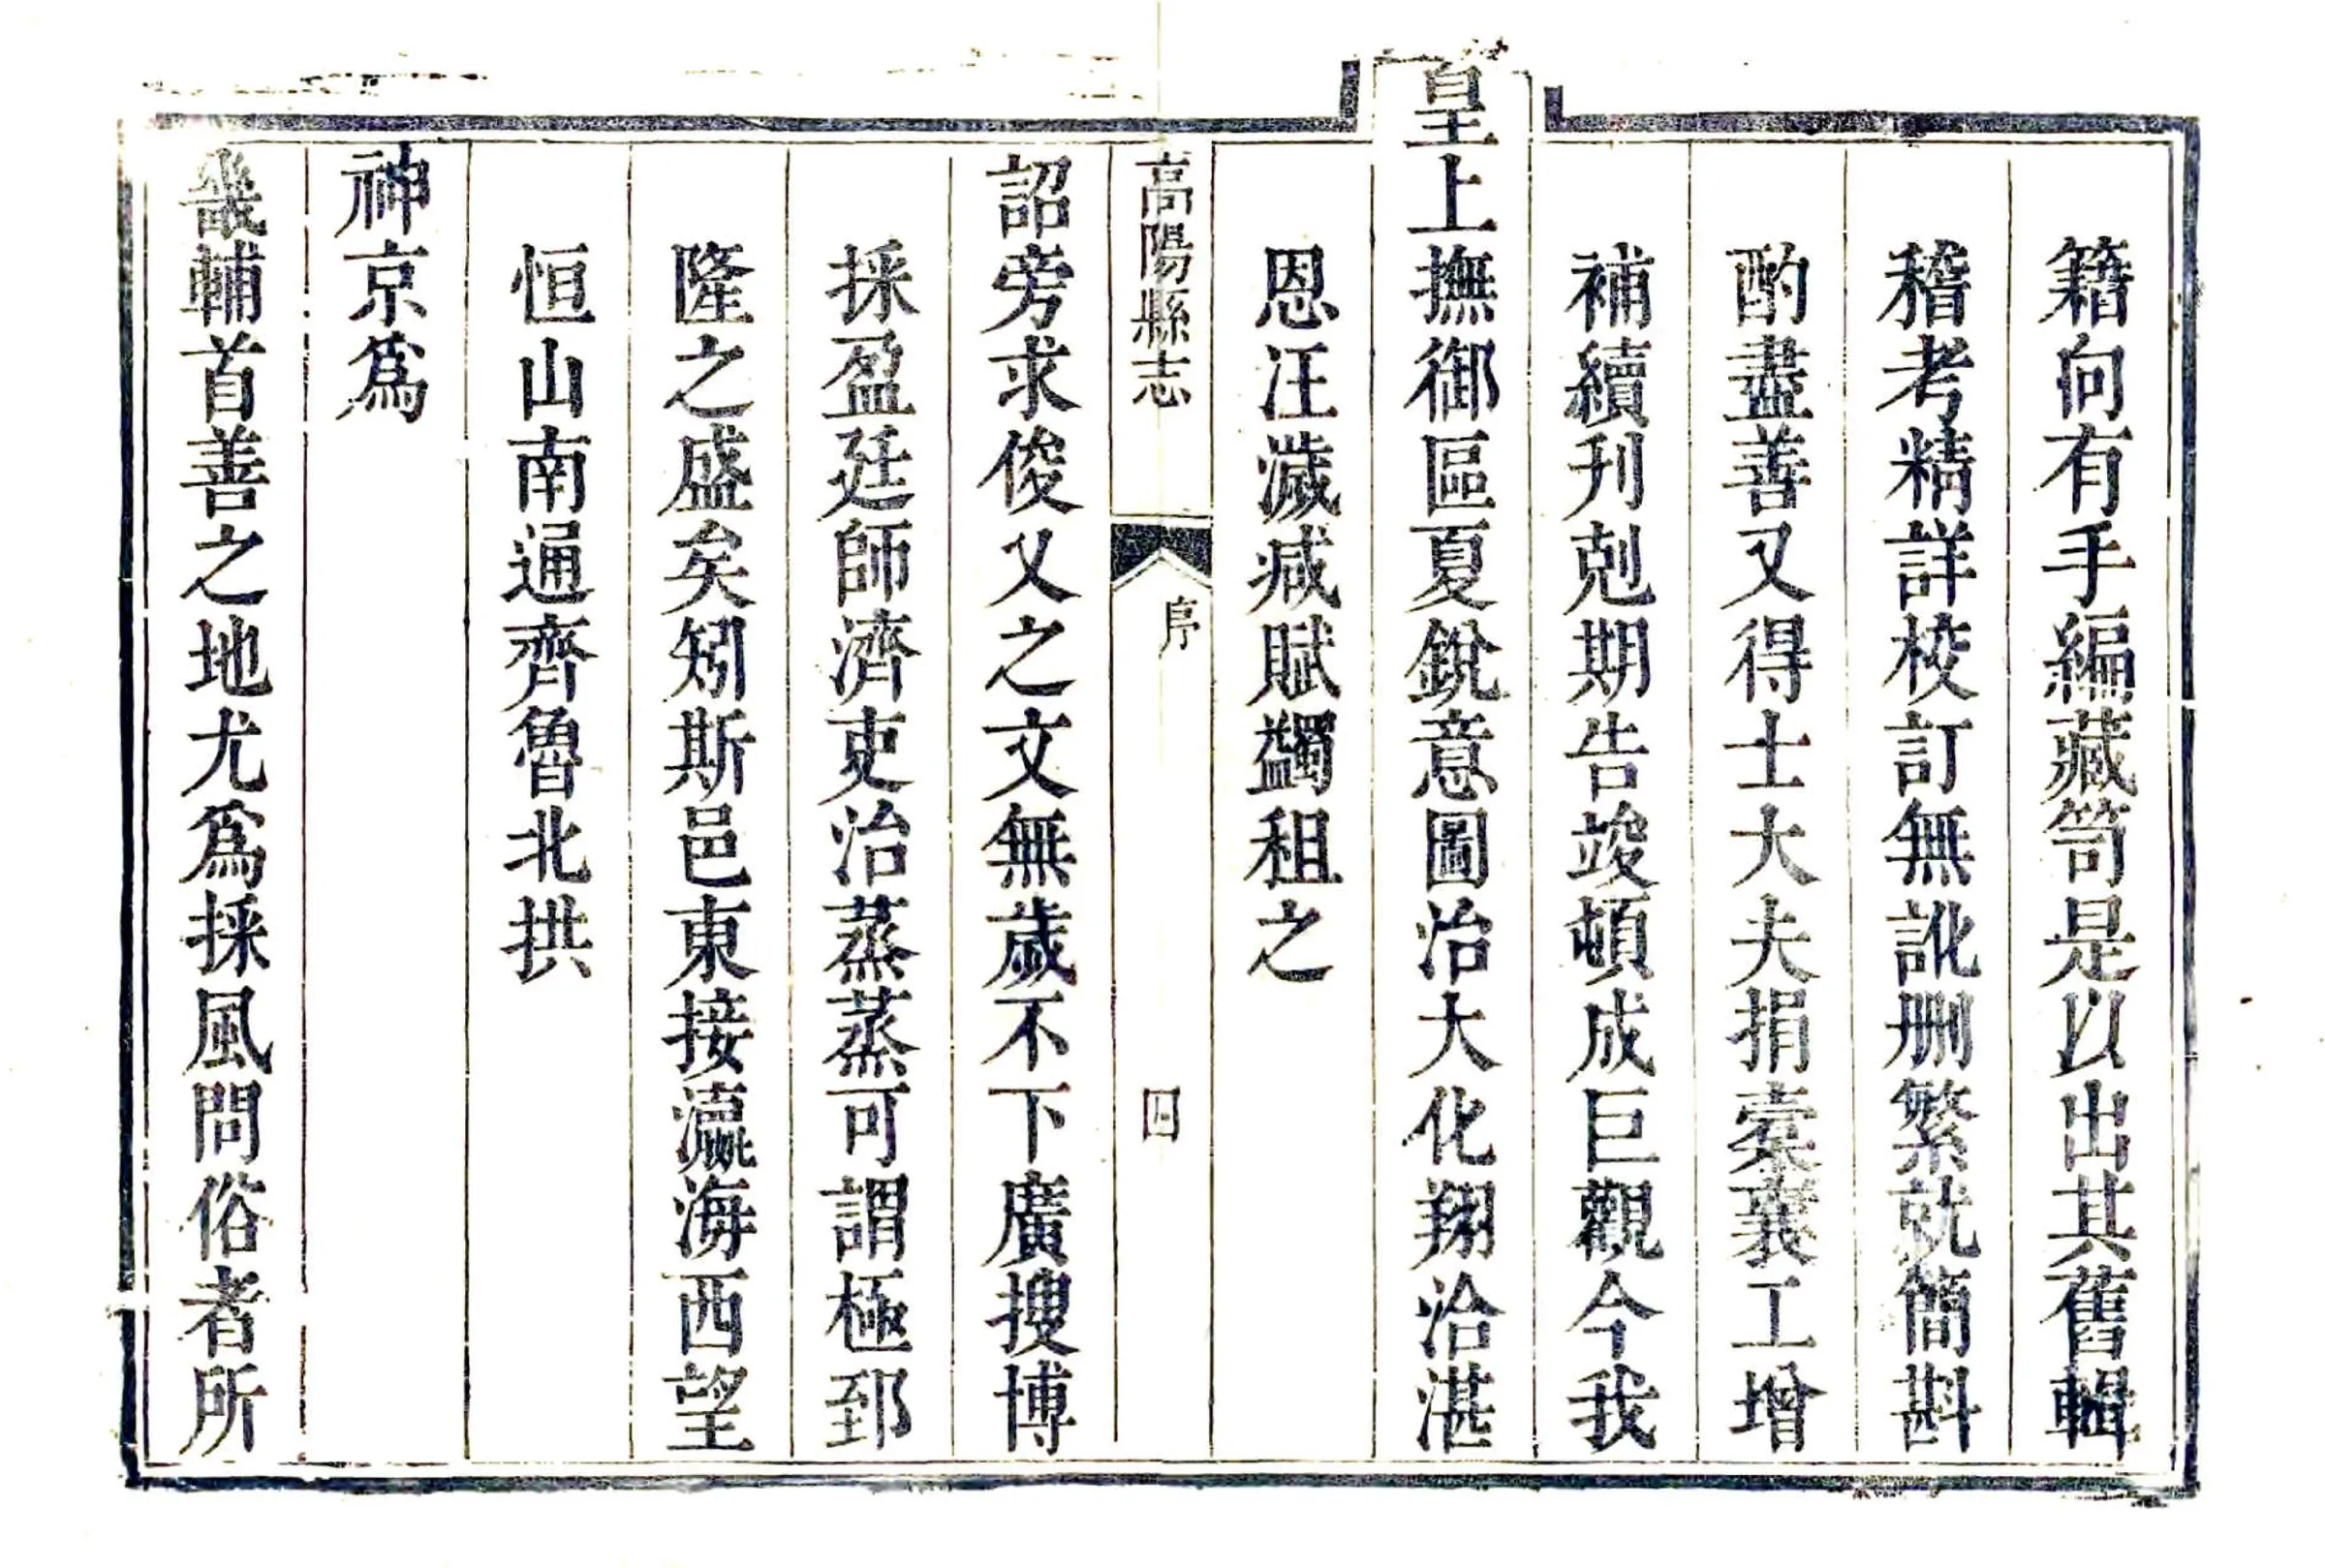 籍向有手編藏笥是以出其舊輯
稽考精詳校訂無訛刪繁就簡斟
酌盡善又得士大夫捐橐襄工增
補續刊剋期告竣頓成巨觀今我
皇上撫御區夏銳意圖治大化翔洽湛
恩汪濊減賦蠲租之
高陽縣志
序
四
詔旁求俊乂之文無歲不下廣搜博
採盈廷師濟吏治蒸蒸可謂極郅
隆之盛矣矧斯邑東接瀛海西望
恒山南通齊魯北拱
神京爲
畿輔首善之地尤爲採風問俗者所